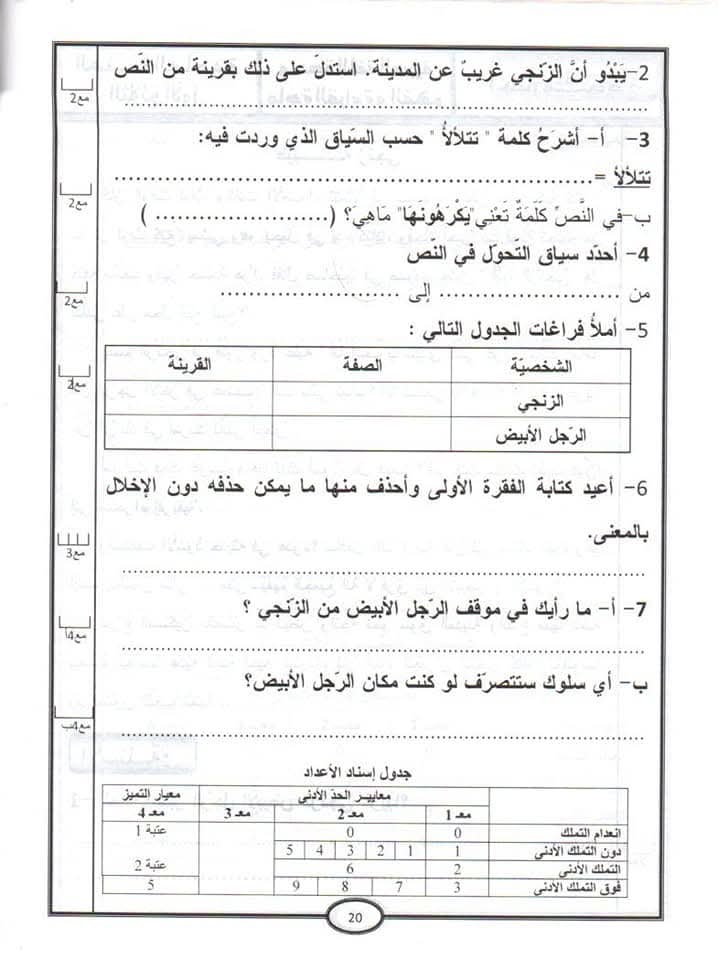 2- يَبْدُو أنَّ الزّنجي غريبٌ عن المدينة. أستدلّ على ذلك بقرينة من النّص
مع2
3- أ- أشرَحُ كلمة " تتلألأُ " حسب السّياق الذي وردت فيه:
تتلألأ = ..........................................................
مع2
ب- في النَّصِّ كَلَمَةٌ تَعْنِي"يَكْرَهُونهَا" مَاهِيَ؟ (....................... )
4- أحدّد سياق التحوّل في النّص
من .......................... إلى ..........................
مع2
5- أملأُ فراغات الجدول التالي :
الشخصيّة الصفة القرينة
الزنجي
الرّجل الأبيض
6- أعيد كتابة الفقرة الأولى وأحذف منها ما يمكن حذفه دون الإخلال
بالمعنى.
مع3
7- أ- ما رأيك في موقف الرّجل الأبيض من الزّنجي ؟
مع4أ
ب- أي سلوك ستتصرّف لو كنت مكان الرّجل الأبيض؟
مع4ب
جدول إسناد الأعداد
معايير الحدّ الأدنى معيار التميز
معـ 1 معـ 2 معـ 3 معـ 4
انعدام التملك 0 0 عتبة 1
دون التملك الأدنى 1 1 2 3 4 5
التملك الأدنى 2 6 عتبة 2
فوق التملك الأدنى 3 7 8 9 5
20